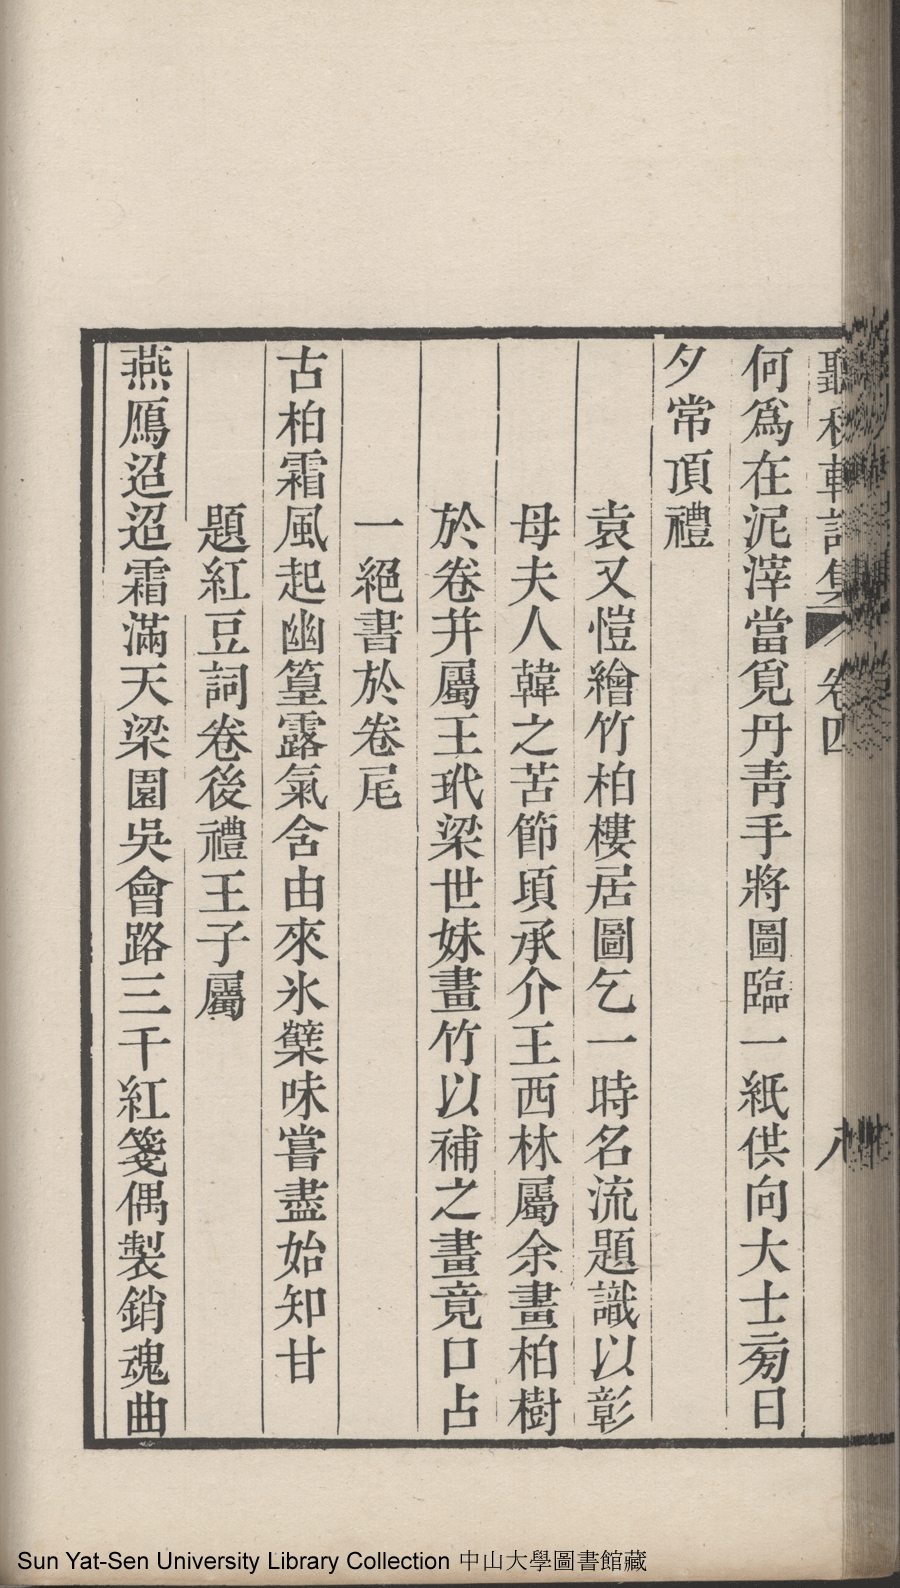 聽秋軒詩集 卷四 八
何爲在泥滓當覓丹青手將圖臨一紙供向大士㫄日
夕常頂禮
袁又愷繪竹柏樓居圖乞一時名流題識以彰
母夫人韓之苦節頃承介王西林屬余畫柏樹
於卷并屬王玳梁世妹畫竹以補之畫竟口占
一絕書於卷尾
古柏霜風起幽篁露氣含由來氷櫱味嘗盡始知甘
題紅豆詞卷後禮王子屬
燕鴈迢迢霜滿天梁園吳會路三千紅箋偶製銷魂曲
Sun Yat-Sen University Library Collection 中山大學圖書館藏